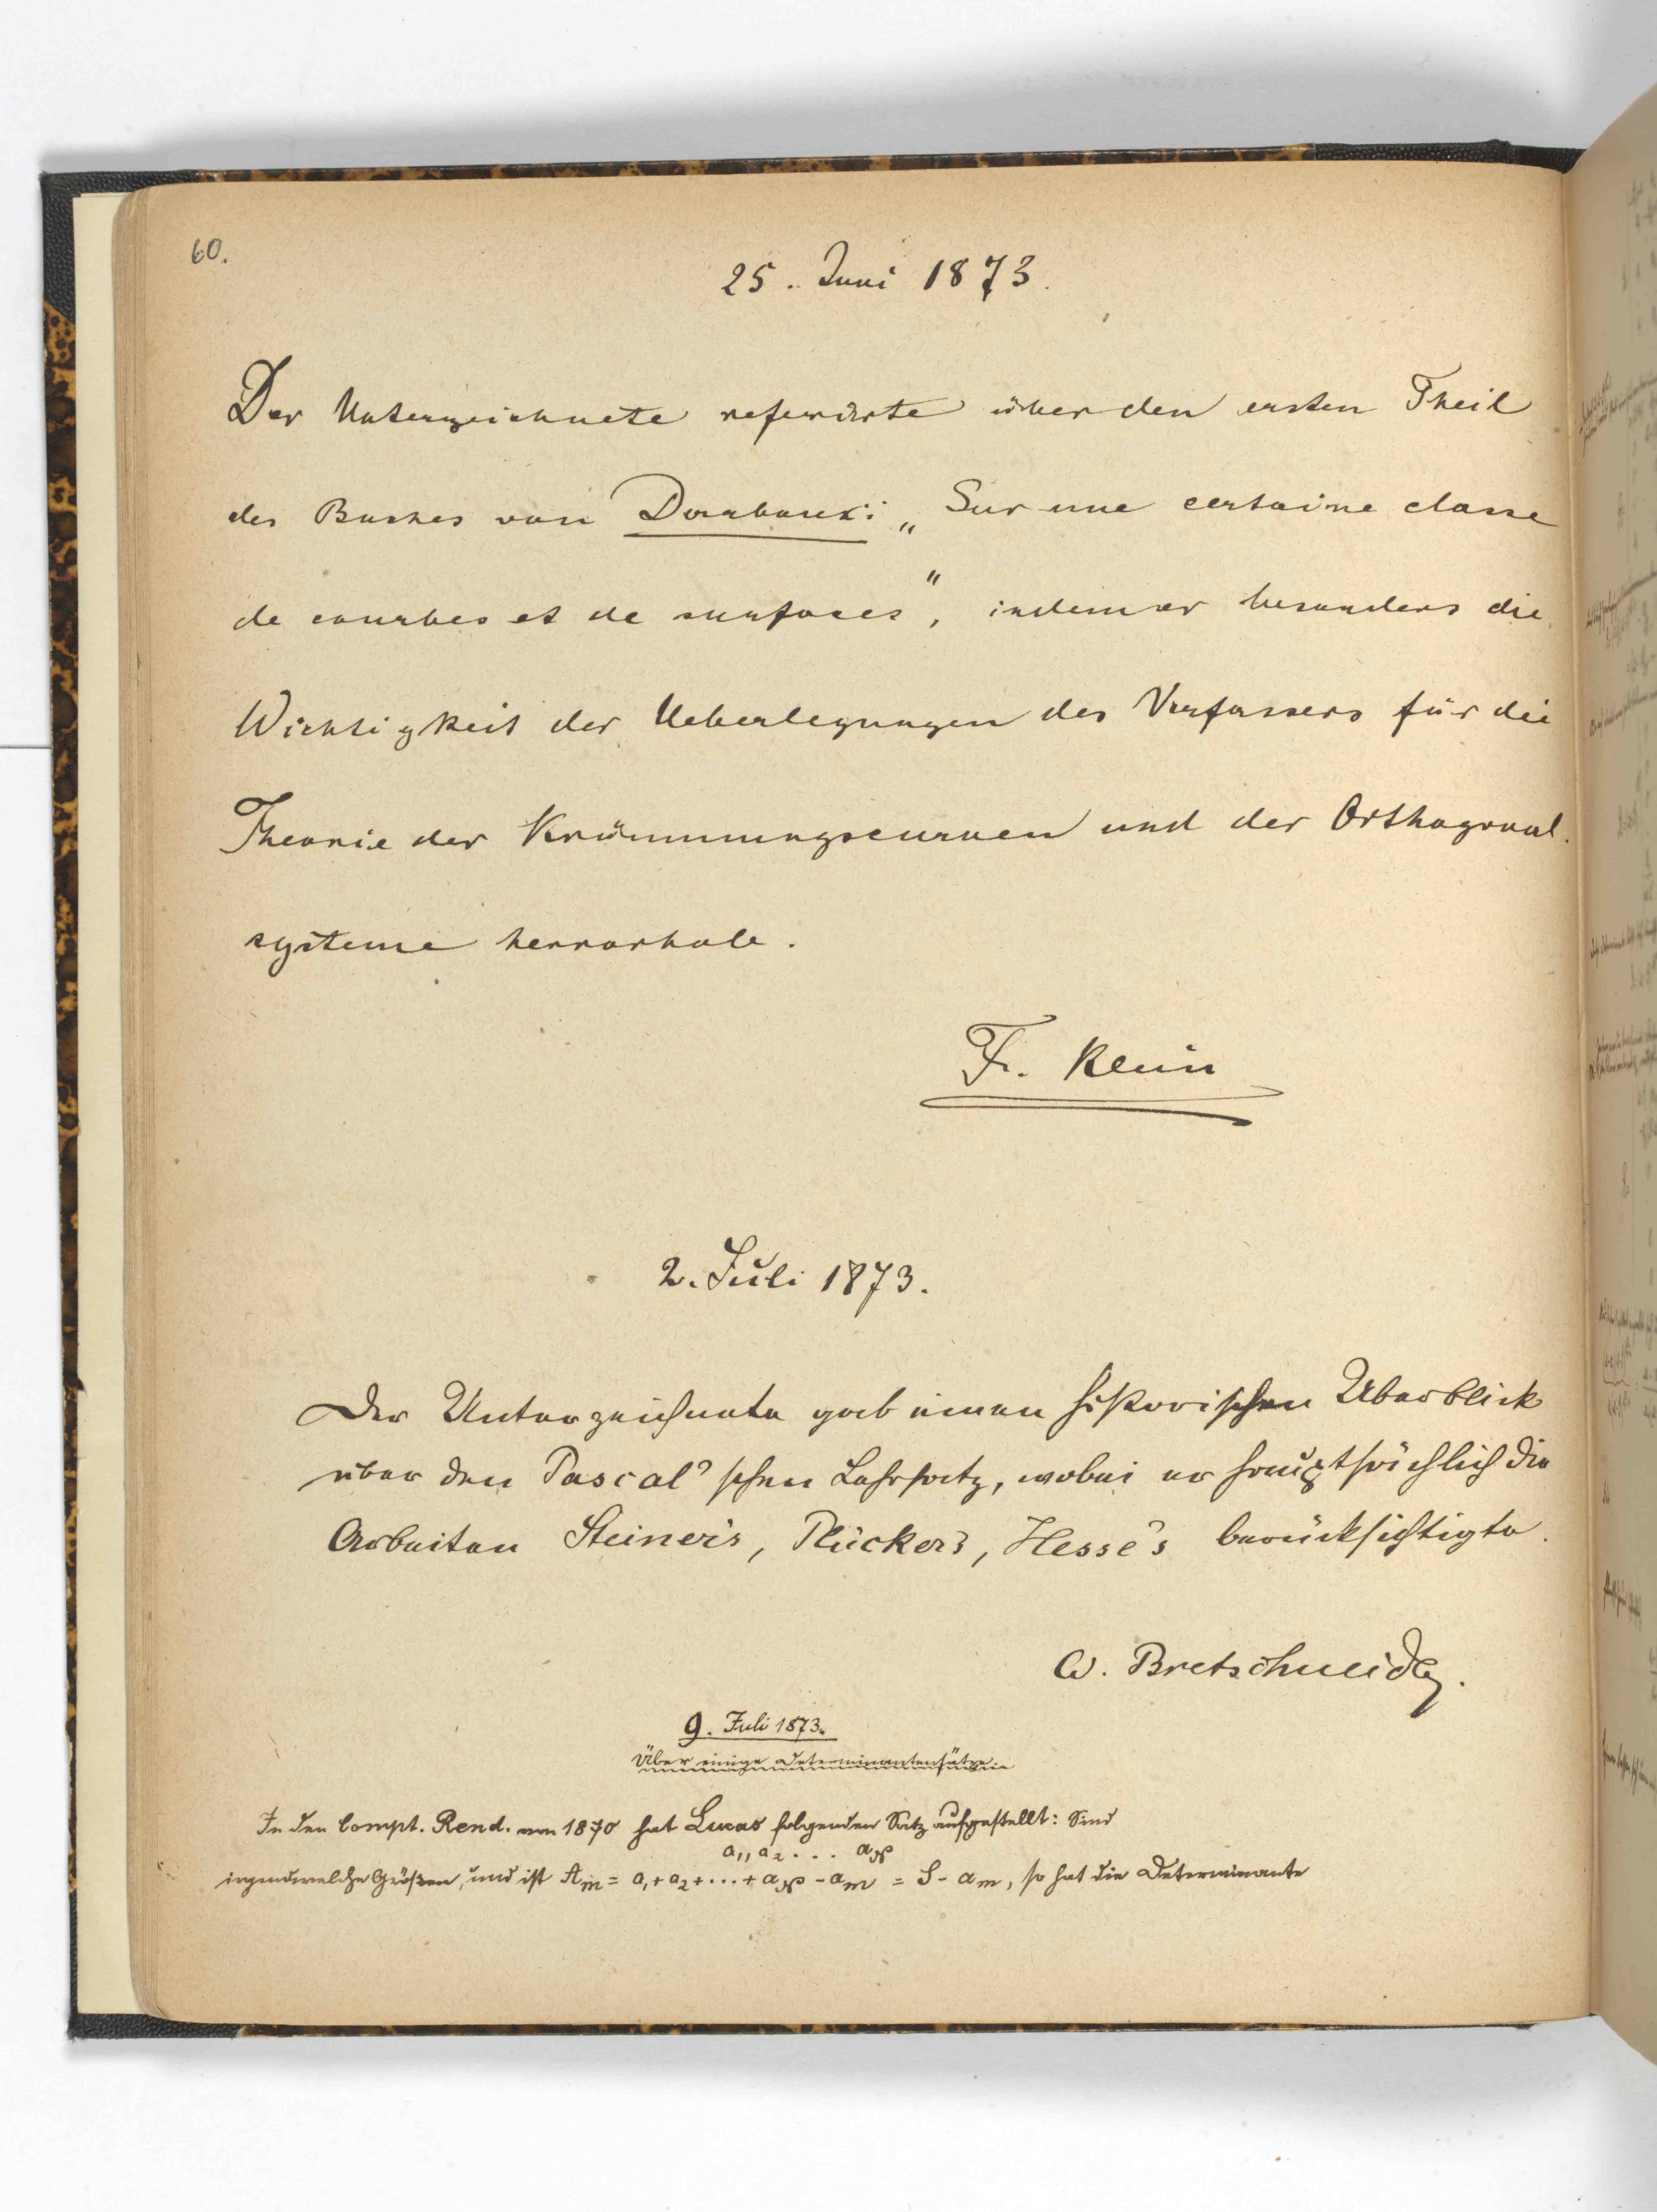 60.
25. Juni 1873.
Der Unterzeichnete referirte über den ersten Theil
des Buches von Darboux: „Sur une certaine classe
de courbes et de surfaces", indem er besonders die
Wichtigkeit der Ueberlegungen des Verfassers für die
Theorie der Krümmungscurven und der Orthogonal-
systeme hervorhob.
F. Klein
2. Juli 1873.
Der Unterzeichnete gab einen historischen Überblick
über den Pascal'schen Lehrsatz, wobei er hauptsächlich die
Arbeiten Steiner's, Plücker's, Hesse's berücksichtigte.
W. Bretschneider.
9. Juli 1873.
Über einige Determinantensätze.
In den Compt. Rend. von 1870 hat Lucas folgenden Satz aufgestellt: Sind
a₁, a₂ . . . aₙ
irgendwelche Größen, und ist Aₘ = a₁ + a₂ + ... + aₙ - aₘ = S - aₘ, so hat die Determinante